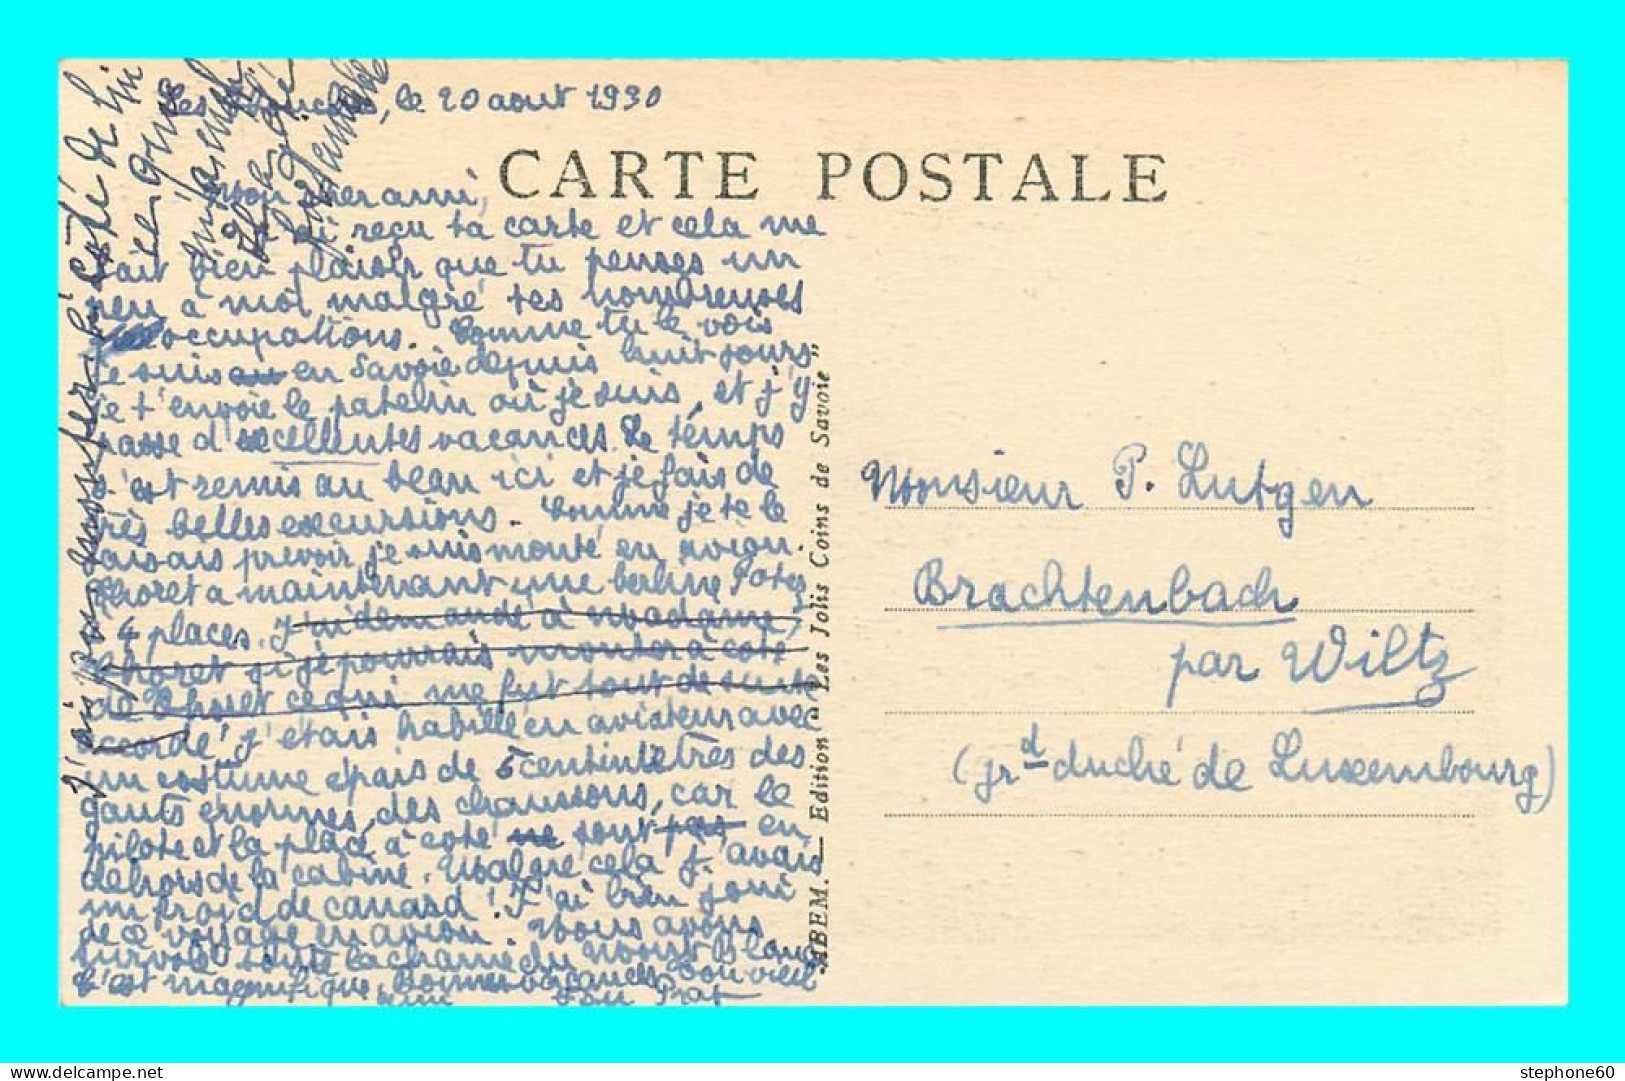 Les Houches, le 20 aout 1930
CARTE POSTALE
Mon cher ami,
J'ai reçu ta carte et cela me
fait bien plaisir que tu penses un
peu à moi malgré tes nombreuses
occupations. Comme tu le vois
je suis en Savoie depuis huit jours,
je t'envoie le patelin où je suis, et j'y
passe d'excellentes vacances. Le temps
s'est remis au beau ici et je fais de
très belles excursions. Comme je te le
faisais prevoir je suis monté en avion.
Thoret a maintenant une berline Potez
4 places. J'ai demandé à Madame
Thoret si je pourrais monter à coté
de Thoret ce qui me fut tout de suite
accordé! J'étais habillé en aviateur avec
un costume épais de 5 centimètres des
gants énormes, des chaussons, car le
pilote et la place à coté ne sont pas en
dehors de la cabine. Malgré cela j'avais
un froid de canard! J'ai bien joui
de ce voyage en avion. Nous avons
survolé toute la chaine du Mont Blanc
C'est magnifique. Bonnes vacances Ton vieil
ami Prat
J'ai pour l'été de
Monsieur P. Lutgen
Brachtenbach
par Wiltz
(gr d duché de Luxembourg)
ABEM. — Edition "Les Jolis Coins de Savoie"
stephone60